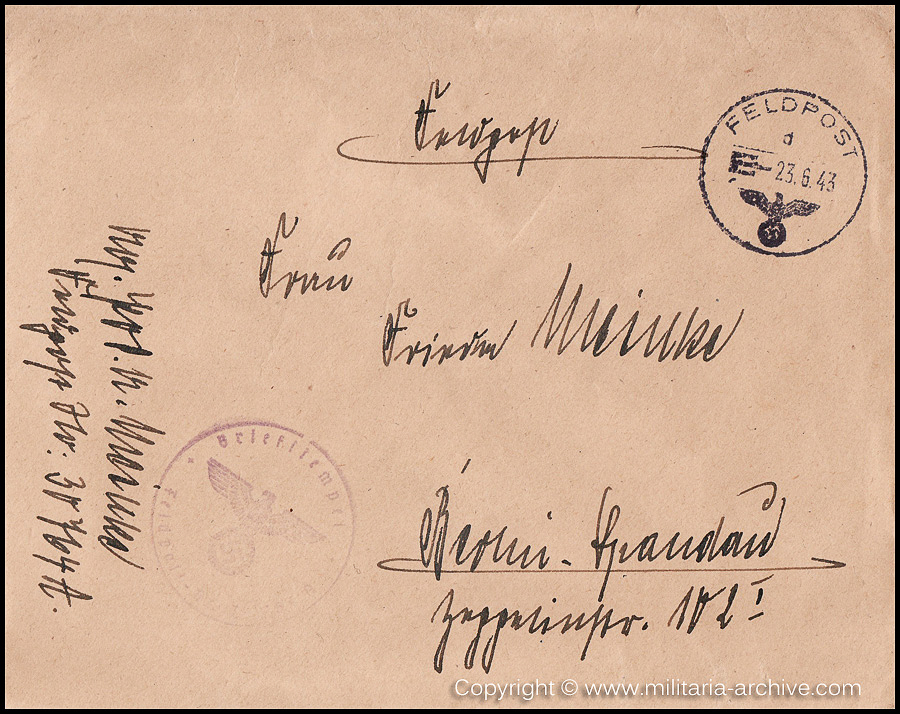 Feldpost
FELDPOST
d
23.6.43
Frau
Frieda Meinke
Berlin-Spandau
Zeppelinstr. 102 I
Meinke
Feldpost Nr.
Briefstempel
Copyright © www.militaria-archive.com